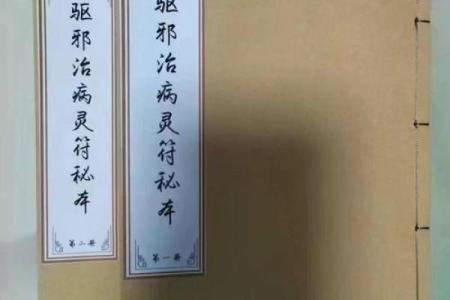 驱邪治病灵符秘本
第二册
驱邪治病灵符秘本
第一册